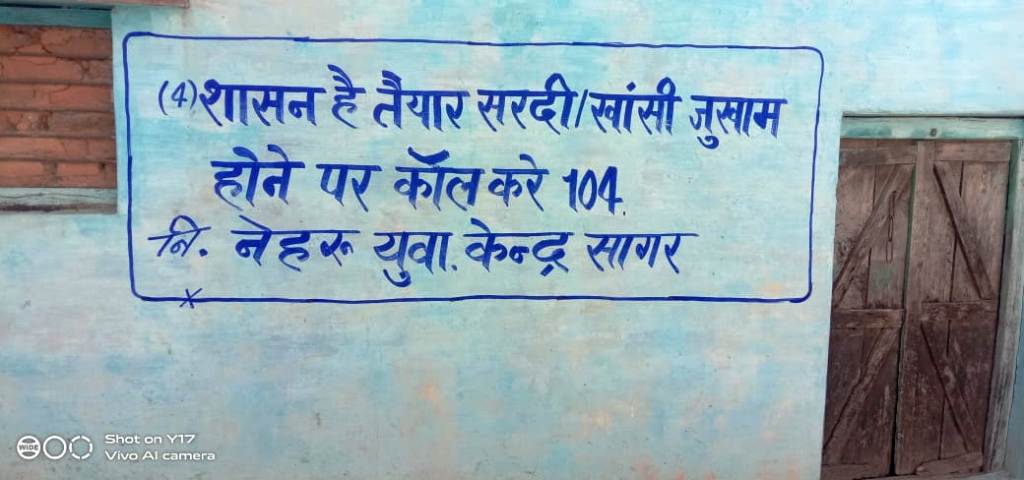 (4) शासन है तैयार सरदी/खांसी जुखाम
होने पर कॉल करे 104.
नि. नेहरू युवा. केन्द्र सागर
x
WIDE
Shot on Y17
Vivo AI camera